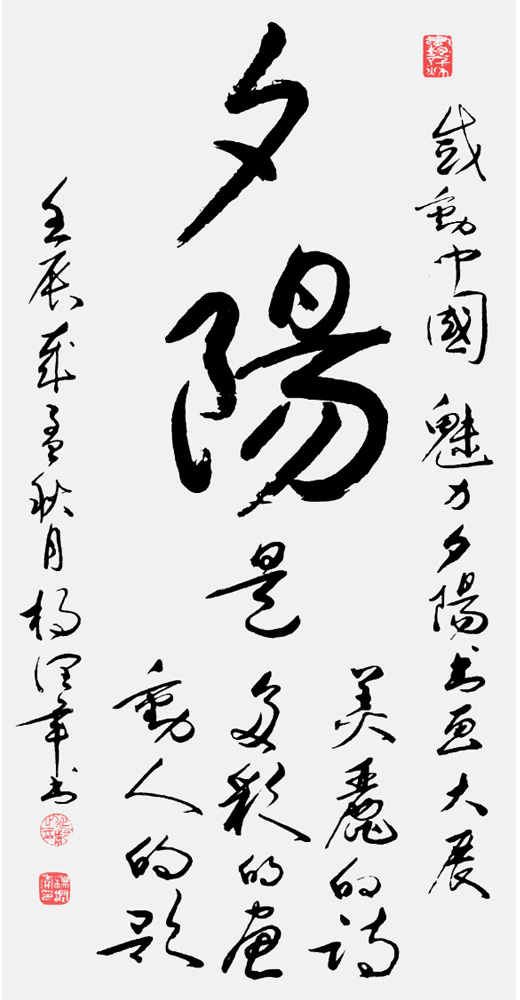 感動中國 魅力夕陽书画大展
夕陽是
美麗的詩
多彩的画
動人的歌
壬辰歲孟秋月 楊章书